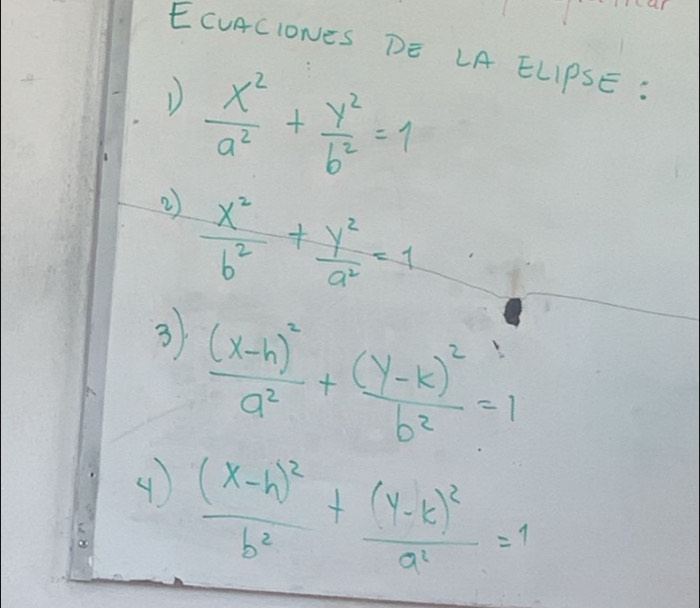 ECUACIONES DE LA ELIPSE:
1) x²/a² + y²/b² = 1
2) x²/b² + y²/a² = 1
3) (x-h)²/a² + (y-k)²/b² = 1
4) (x-h)²/b² + (y-k)²/a² = 1